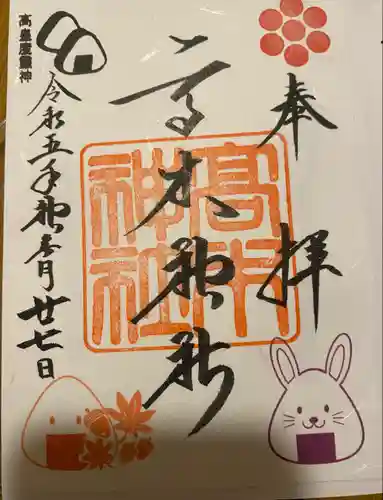 奉拝
高木神社
高木神社
高皇産靈神
令和五年神無月廿七日